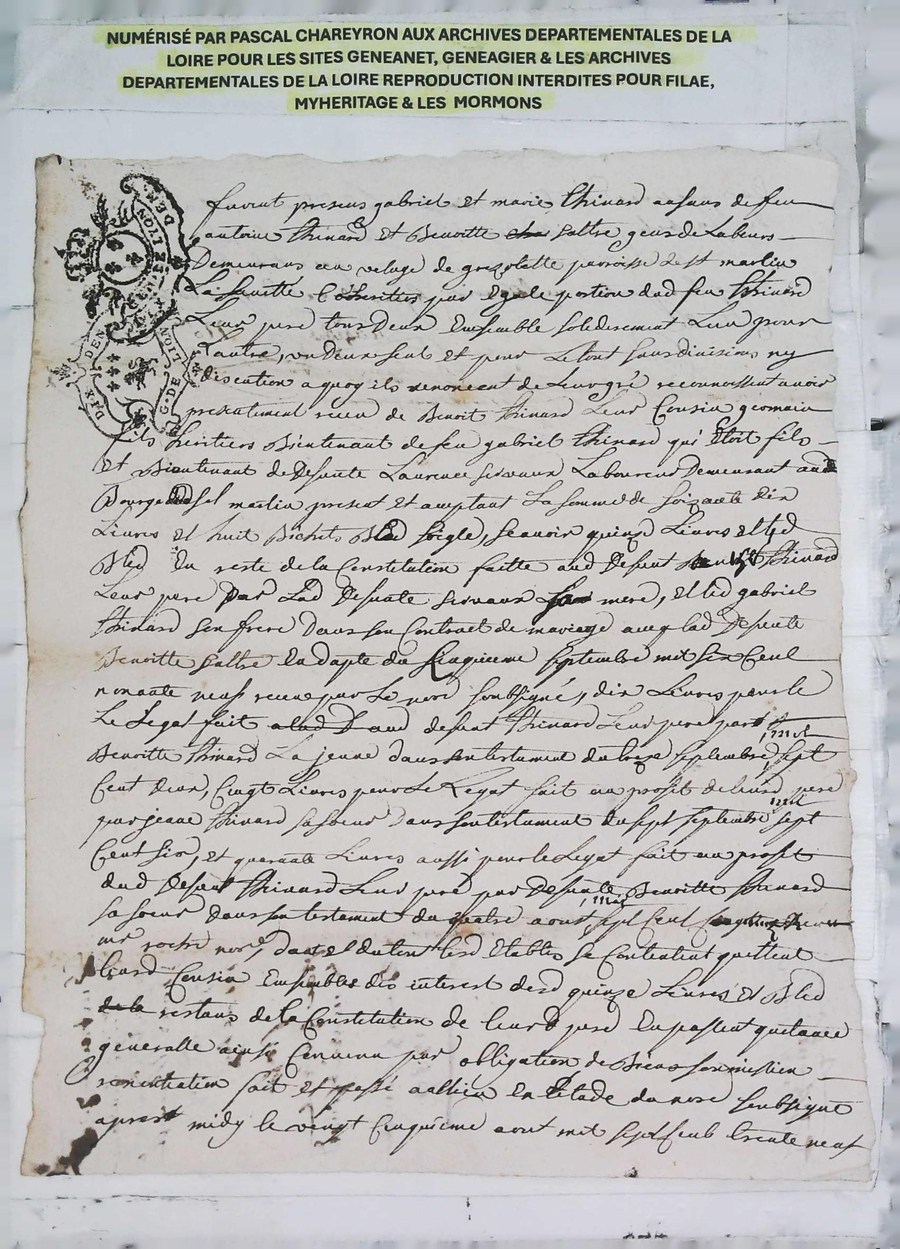 NUMÉRISÉ PAR PASCAL CHAREYRON AUX ARCHIVES DEPARTEMENTALES DE LA
LOIRE POUR LES SITES GENEANET, GENEAGIER & LES ARCHIVES
DEPARTEMENTALES DE LA LOIRE REPRODUCTION INTERDITES POUR FILAE,
MYHERITAGE & LES MORMONS
furent presens gabriel et marie thinard enfans de feu
antoine thinard et Benoitte sattre gens de Labeurs
Demeurans au velage de parroisse de st martin
La sauvette Coheritiers par Egale portion dud feu thinard
Leur pere tous Deux Ensemble soliderement L'un pour
L'autre, un Deux seul et pour Le tout sans divisions ny
discution a quoy ils renoncent de Leur gré reconnoissent avoir
presentement receu de Benoit thinard Leur Cousin germain
fils heritiers Bientenant de feu gabriel thinard qui Etoit fils
Et Bientenant de Defunte Laurence servaux Laboureur Demeurant aud
Bourg dud st martin present et aceptant La somme de soizante dix
Livres et huit Bichets Bled soigle, seavoir quinze Livres et led
Bled Du reste de la Constitution faitte aud Defunt thinard
Leur pere par Lad Defunte servaux mere, et led gabriel
thinard son frere Dans son Contract de mariage avec lad Defunte
Benoitte sattre En dapte du Cinquieme septembre mil six Cent
nonante neuf receu par Le nore soubsigné, dix Livres pour le
Le Legat fait aud defunt thinard Leur pere par
Benoitte thinard La jeune dans son testament du treze septembre mil sept
Cent deux, Cingt Livres pour Le Legat fait au profit de leurd pere
par jeane thinard sa soeur Dans son testament du sept septembre mil sept
Cent six, et quarante Livres aussi pour le Legat fait au profit
dud Defunt thinard Leur pere par Defunte Benoitte thinard
sa soeur dans son testament du quatre aout mil sept Cent
me roche nore, dont et du tout lesd Etablis se Contentent quittent
leurd Cousin Ensembles des interest desd quinze Livres et Bled
restans de la Constitution de leurd pere En passent quitance
generalle ainsi Convenu par obligation de Biens soumission
renontiation fait et passé a allieu En L'etude du nore soubsigné
apres midy le vingt Cinquieme aout mil sept Cent trente neuf